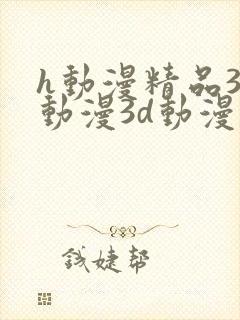 h動漫精品3
動漫3d動漫
錢婕幫